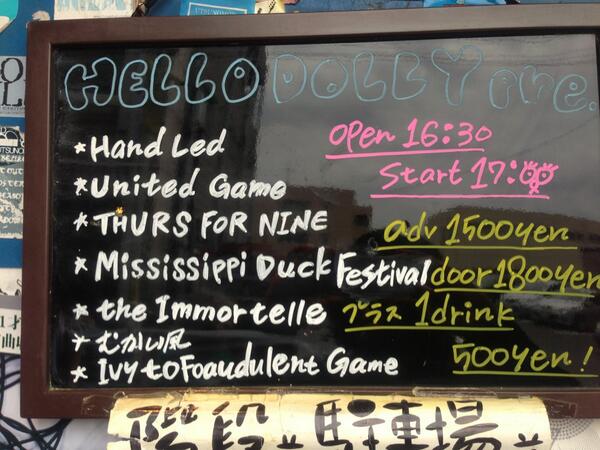 HELLO DOLLY pre.
*Hand Led
*United Game
*THURS FOR NINE
*Mississippi Duck Festival
*the Immortelle
*むかい風
*Ivy toFoaudulent Game
open 16:30
Start 17:00
adv 1500yen
door 1800yen
プラス 1drink
500yen!
階段*駐車場*